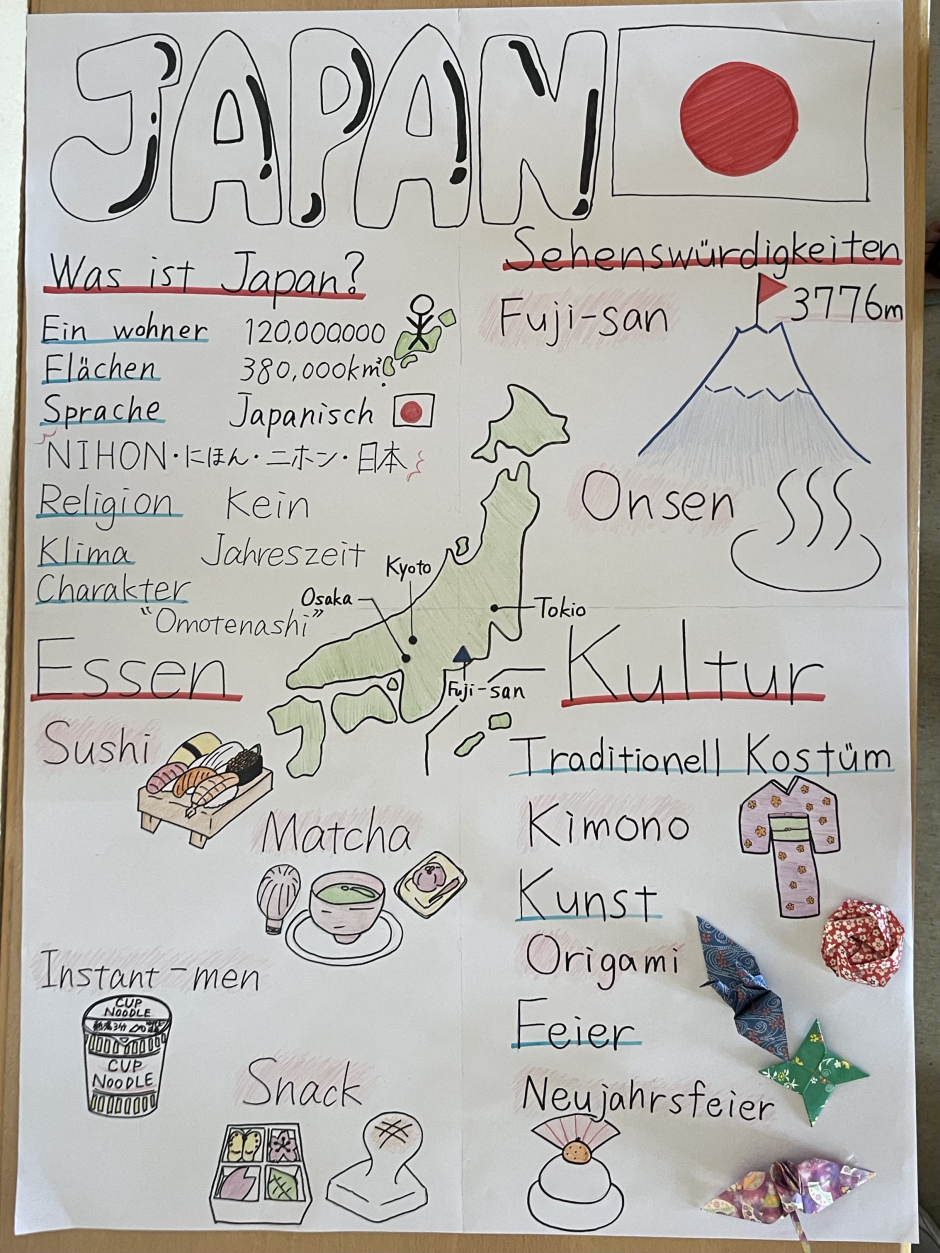 JAPAN
Was ist Japan?
Ein wohner 120,000000
Flächen 380,000km²
Sprache Japanisch
NIHON・にほん・ニホン・日本
Religion Kein
Klima Jahreszeit
Charakter
"Omotenashi"
Sehenswürdigkeiten
Fuji-san 3776m
Onsen
Kyoto
Osaka
Tokio
Fuji-san
Essen
Sushi
Matcha
Instant-men
CUP
NOODLE
CUP
NOODLE
Snack
Kultur
Traditionell Kostüm
Kimono
Kunst
Origami
Feier
Neujahrsfeier